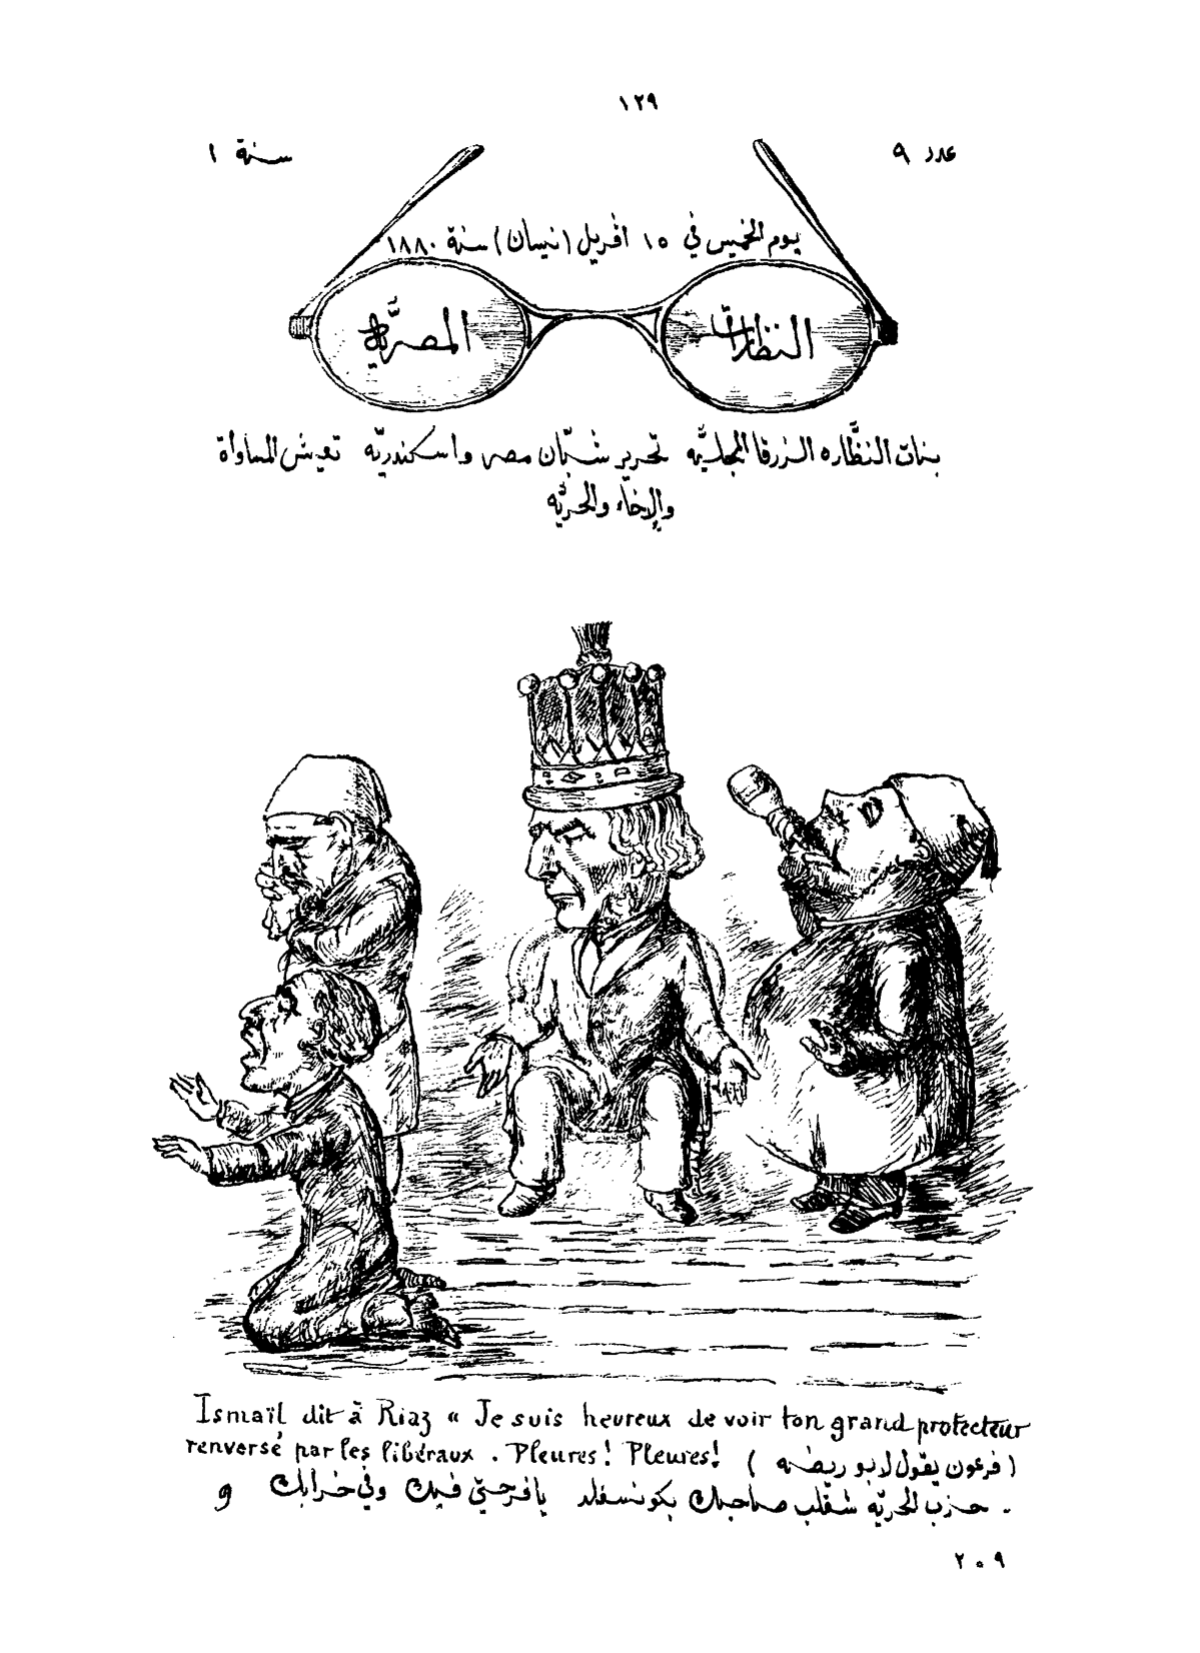 ١٢٩
عدد ٩
سنة ١
يوم الخميس في ١٥ افريل (نيسان) سنة ١٨٨٠
النظارات
المصريّة
بنات النظّاره الزرقا المجليّه تحرير شبّان مصر واسكندريّه تعيش المساواة
والإخاء والحريّه
Ismaïl dit à Riaz « Je suis heureux de voir ton grand protecteur
renversé par les libéraux. Pleures! Pleures!
(فرعون يقول لابو ريضه)
. حزب الحريّه شقلب صاحبك بكونسفلد يا فرحتي فيك وفي خرابك و
٢٠٩